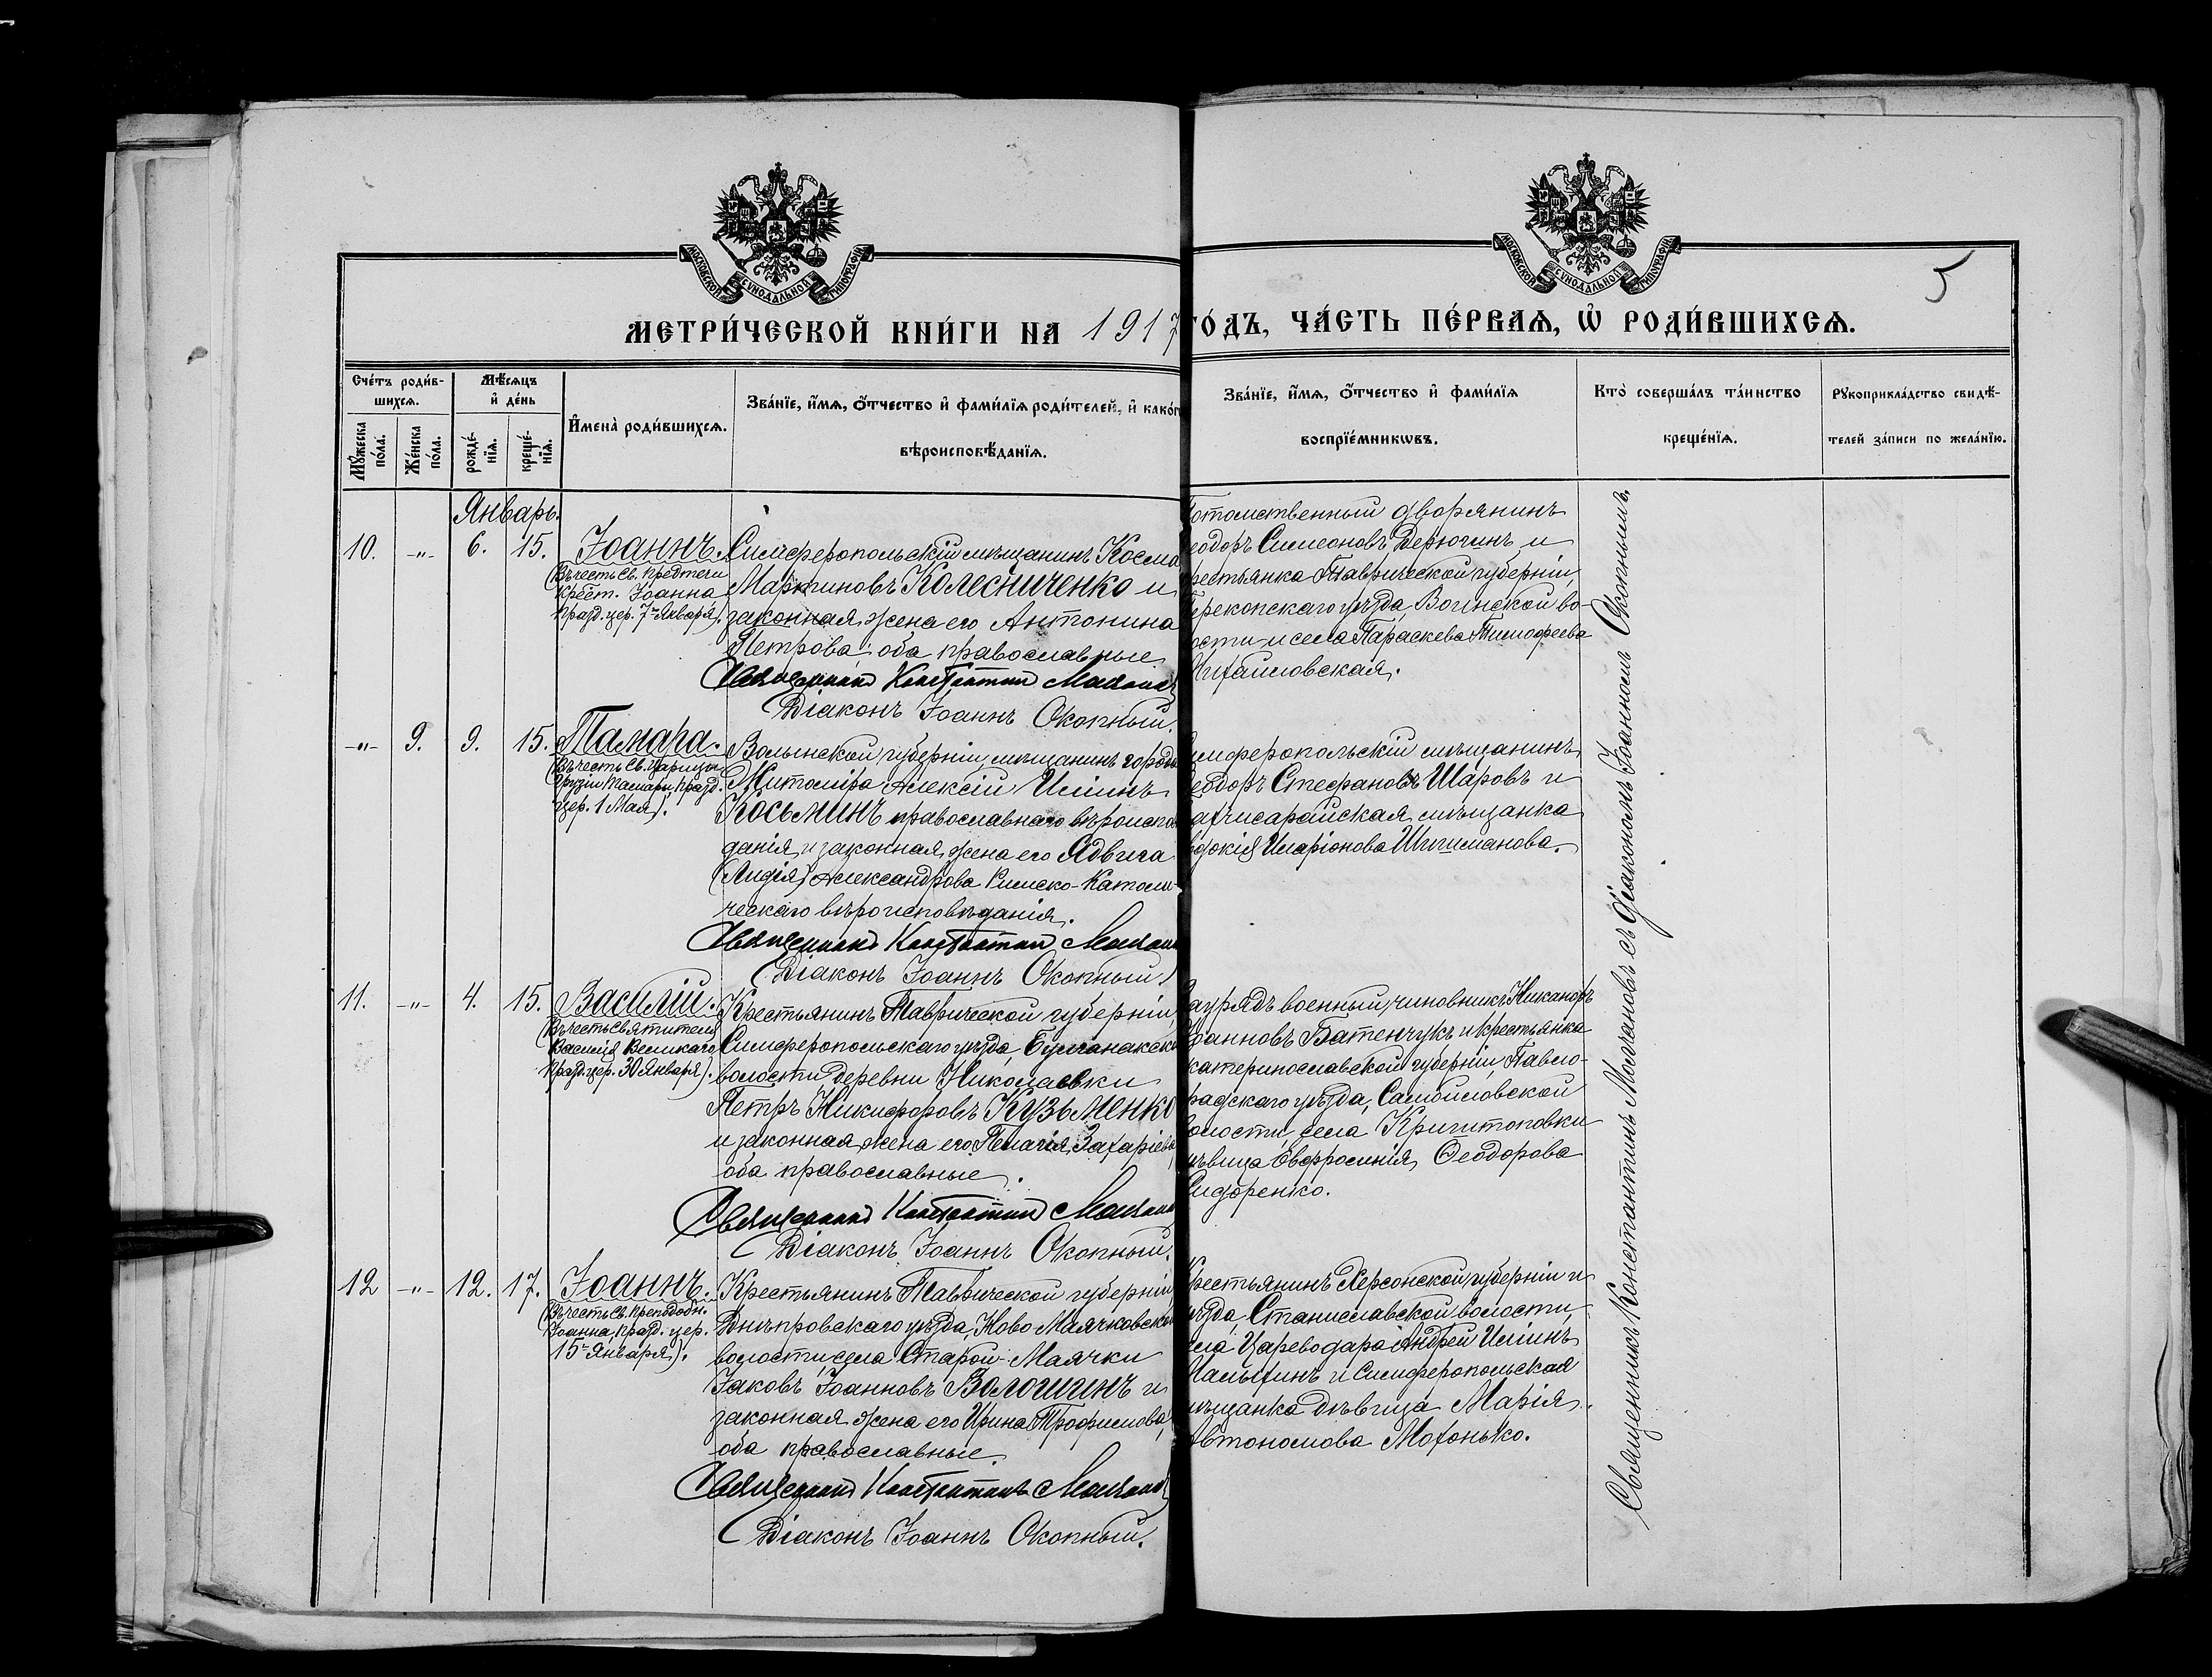 МОСКОВСКОЙ СѴНОДАЛЬНОЙ ТИПОГРАФІИ
МОСКОВСКОЙ СѴНОДАЛЬНОЙ ТИПОГРАФІИ
5
МЕТРИ́ЧЕСКОЙ КНИ́ГИ НА 1917
ГО́ДЪ, ЧА́СТЬ ПЕ́РВАѦ, Ѡ҆ РОДИ́ВШИХСѦ.
Сче́тъ роди́в-
шихсѧ.
Мꙋ́жеска по́ла.
Же́нска по́ла.
Мѣ́сѧцъ
и҆ де́нь
рожде́-
нїѧ.
креще́-
нїѧ.
И҆мена̀ роди́вшихсѧ.
Зва́нїе, и҆́мѧ, ѻ҆́тчество и҆ фами́лїѧ роди́телей, и҆ како́г
вѣроисповѣ́данїѧ.
Зва́нїе, и҆́мѧ, ѻ҆́тчество и҆ фами́лїѧ
воспрїе́мникѡвъ.
Кто̀ соверша́лъ та́инство
креще́нїѧ.
Рꙋкоприкла́дство свидѣ́-
телей за́писи по жела́нїю.
Январь.
10. -"- 6. 15. Іоаннъ.
(Въ честь Св. Предтечи
Крест. Іоанна
празд. цер. 7го Января).
Симферопольскій мѣщанинъ Косма
Мартиновъ Колесниченко и
законная жена его Антонина
Петрова, оба православные
Священникъ Константинъ Молчанов
Діаконъ Іоаннъ Окопный.
отомственный дворянинъ
еодоръ Симеоновъ Дерюгинъ и
рестьянка Таврической губерніи,
ерекопскаго уѣзда, Воинской во-
ости и села Параскева Тимофеева
Михайловская.
-"- 9. 9. 15. Тамара.
(Въ честь Св. Царицы
Грузіи Тамары, празд.
цер. 1 Мая).
Волынской губерніи, мѣщанинъ города
Житоміра Алексій Иліинъ
Косьминъ православнаго вѣроиспов
данія, и законная жена его Ядвига
(Лидія) Александрова Римско-Католи-
ческаго вѣроисповѣданія.
Священникъ Константинъ Молчан
Діаконъ Іоаннъ Окопный
имферопольскій мѣщанинъ
еодоръ Стефановъ Шаровъ и
ахчисарайская мѣщанка
вдокія Иларіонова Шишманова.
11. -"- 4. 15. Василій.
(Въ честь Святителя
Василія Великаго
празд. цер. 30 Января).
Крестьянинъ Таврической губерніи,
Симферопольскаго уѣзда, Булганакско
волости деревни Николаевки
Петръ Никифоровъ Кузьменко
и законная жена его Пелагія Захаріева,
оба православные.
Священникъ Константинъ Молчано
Діаконъ Іоаннъ Окопный.
аурядъ военный чиновникъ Никаноръ
оанновъ Батенчукъ и крестьянка
катеринославской губерніи, Павло-
радскаго уѣзда, Самойловской
олости, села
ѣвица Евфросинія Ѳеодорова
Сидоренко.
12 -"- 12. 17. Іоаннъ.
(Въ честь Св. Преподобн.
Іоанна, празд. цер.
15го Января).
Крестьянинъ Таврической губерніи
Днѣпровскаго уѣзда, Ново-Маячковско
волости, села Старой-Маячки
Іаковъ Іоанновъ Волошинъ и
законная жена его Ирина Трофимова,
оба православные.
Священникъ Константинъ Молчанов
Діаконъ Іоаннъ Окопный.
рестьянинъ Херсонской губерніи и
ѣзда, Станиславской волости,
ела Цареводара Андрей Иліинъ
Малыхинъ и Симферопольская
мѣщанка дѣвица Марія
Автономова Мохонько.
Священникъ Константинъ Молчановъ съ діакономъ Іоанномъ Окопнымъ.